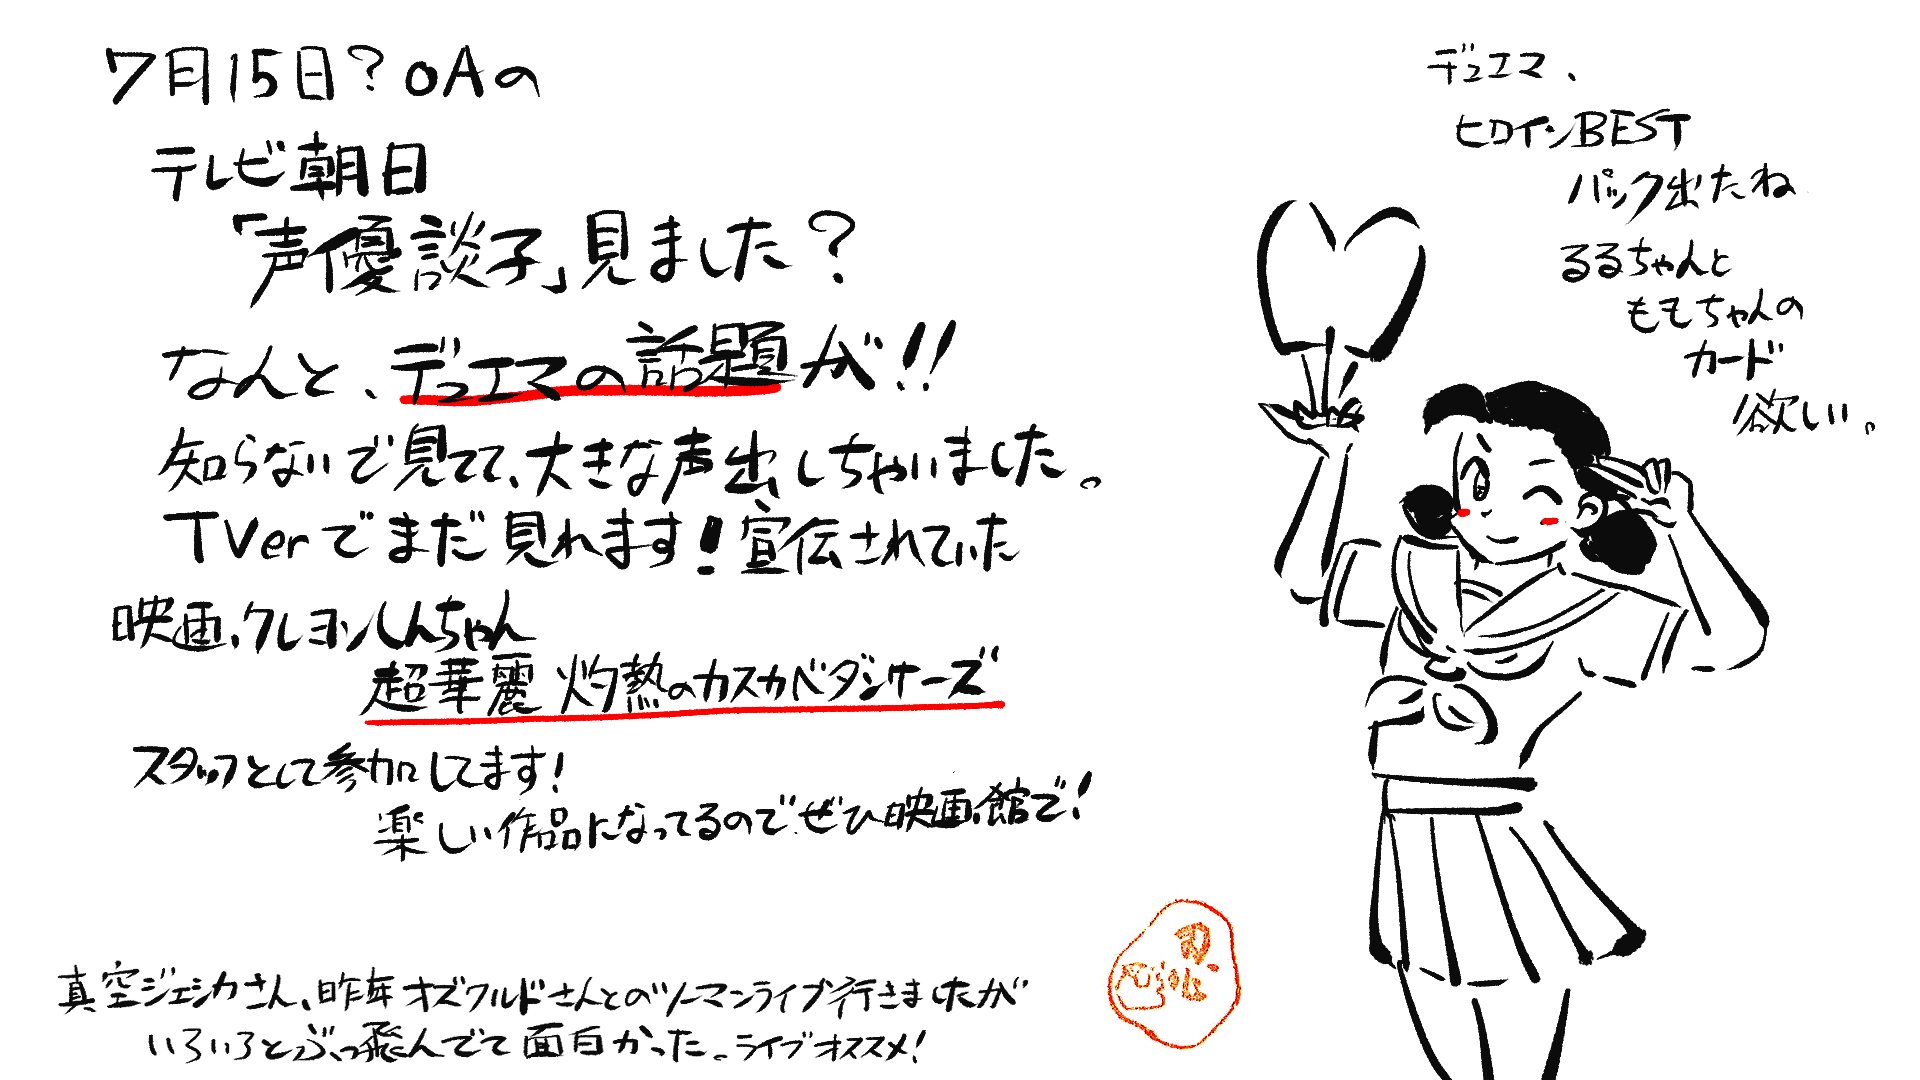 7月15日?OAの
テレビ朝日
「声優談子」見ました?
なんと、デュエマの話題が!!
知らないで見てて、大きな声出しちゃいました。
TVerでまだ見れます!宣伝されていた
映画クレヨンしんちゃん
超華麗 灼熱のカスカベダンサーズ
スタッフとして参加してます!
楽しい作品になってるのでぜひ映画館で!
真空ジェシカさん、昨年オズワルドさんとのツーマンライブ行きましたが
いろいろとぶっ飛んでて面白かった。ライブオススメ!
デュエマ、
ヒロインBEST
パック出たね
るるちゃんと
ももちゃんの
カード
欲しい。